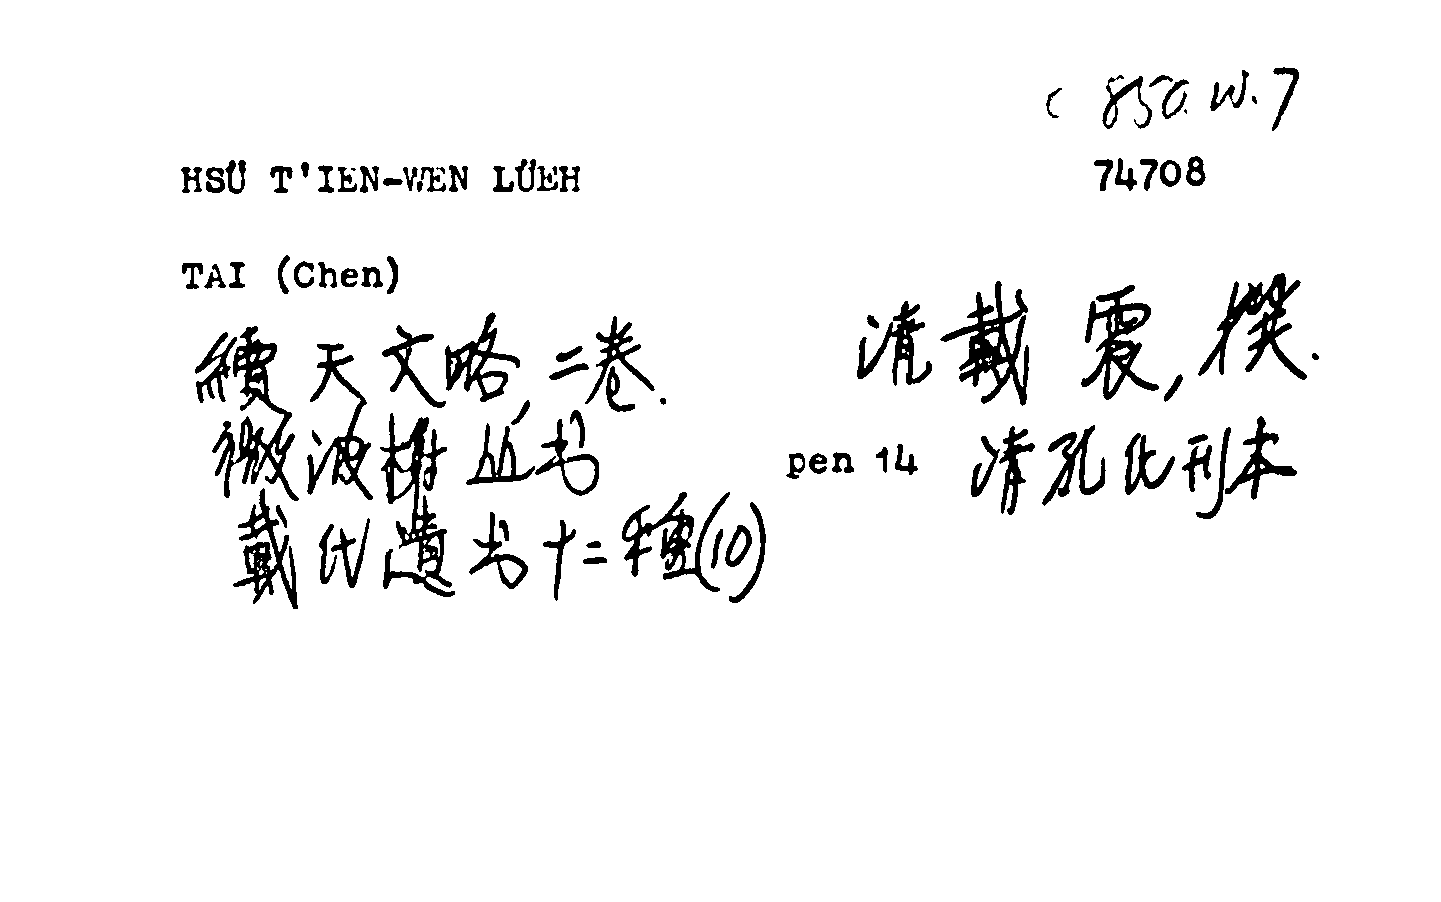 C 850. W. 7
HSÜ T'IEN-WEN LÜEH 74708
TAI (Chen)
續天文略, 二卷. 清戴震, 撰.
微波榭丛书 pen 14 清孔氏刊本
戴氏遺书十二種(10)